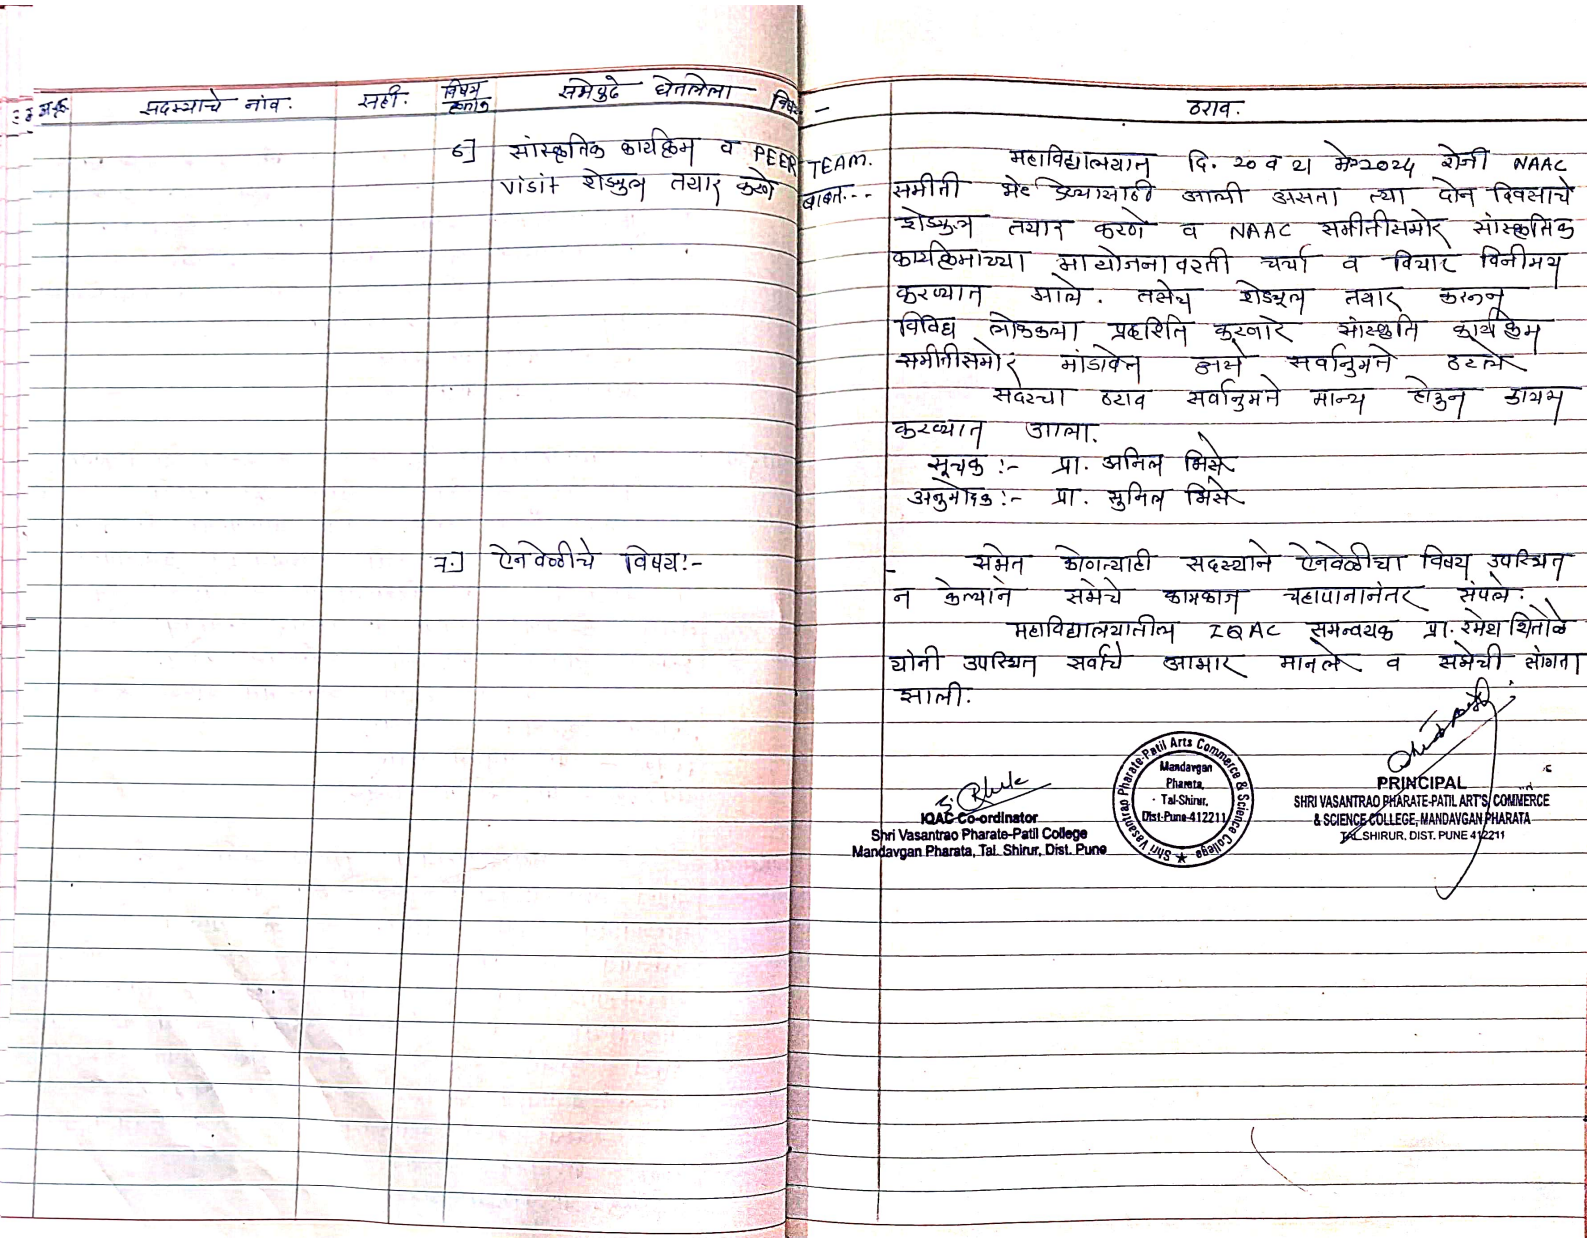 अ.क्र. सदस्याचे नांव. सही. विषय क्रमांक सभेपुढे घेतलेला विषय - ठराव.
6] सांस्कृतिक कार्यक्रम व PEER TEAM.
Visit शेड्युल तयार करणे बाबत...
महाविद्यालयात दि. 20 व 21 मे 2024 रोजी NAAC
समीती भेट देण्यासाठी आली असता त्या दोन दिवसाचे
शेड्युल तयार करणे व NAAC समीतीसमोर सांस्कृतिक
कार्यक्रमाच्या आयोजनावरती चर्चा व विचार विनीमय
करण्यात आले. तसेच शेड्यूल तयार करून
विविध लोककला प्रदर्शित करणारे सांस्कृति कार्यक्रम
समीतीसमोर मांडावेत असे सर्वानुमते ठरले
सदरचा ठराव सर्वानुमते मान्य होऊन कायम
करण्यात आला.
सूचक :- प्रा. अनिल भिसे
अनुमोदक :- प्रा. सुनिल भिसे
7.] ऐनवेळीचे विषय :-
सभेत कोणत्याही सदस्याने ऐनवेळीचा विषय उपस्थित
न केल्याने सभेचे कामकाज चहापानानंतर संपले.
महाविद्यालयातील IQAC समन्वयक प्रा. रमेश थितोळे
यांनी उपस्थित सर्वांचे आभार मानले व सभेची सांगता
झाली.
IQAC Co-ordinator
Shri Vasantrao Pharate-Patil College
Mandavgan Pharata, Tal. Shirur, Dist. Pune
Shri Vasantrao Pharate-Patil Arts Commerce & Science College
Mandavgan
Pharata,
Tal-Shirur,
Dist-Pune-412211
PRINCIPAL
SHRI VASANTRAO PHARATE-PATIL ART'S, COMMERCE
& SCIENCE COLLEGE, MANDAVGAN PHARATA
TAL. SHIRUR, DIST. PUNE 412211